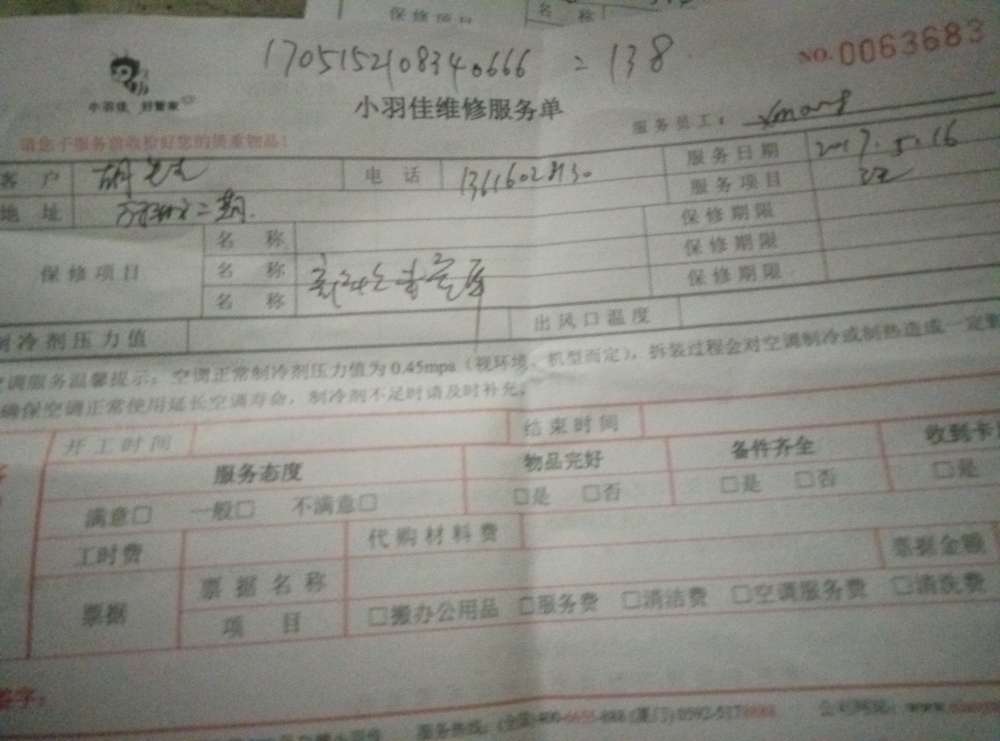 保修项目 名 称
1705152108340666 = 138
NO.0063683
小羽佳 好管家
小羽佳维修服务单
服务员工:
请您于服务前收检好您的贵重物品!
客 户 胡先生 电 话 服务日期 2017.5.16
地 址 二期. 服务项目
保修项目 名 称 保修期限
名 称 保修期限
名 称 保修期限
制冷剂压力值 出风口温度
空调服务温馨提示:空调正常制冷剂压力值为0.45mpa(视环境、机型而定),拆装过程会对空调制冷或制热造成一定
确保空调正常使用延长空调寿命,制冷剂不足时请及时补充。
开工时间 结束时间
服务态度 物品完好 备件齐全 收到卡
满意□ 一般□ 不满意□ □是 □否 □是 □否 □是
工时费 代购材料费
票据 票据名称 票据金额
项 目 □搬办公用品 □服务费 □清洁费 □空调服务费 □清洗费
签字:
服务热线:(全国)400- -888(厦门)0592-517